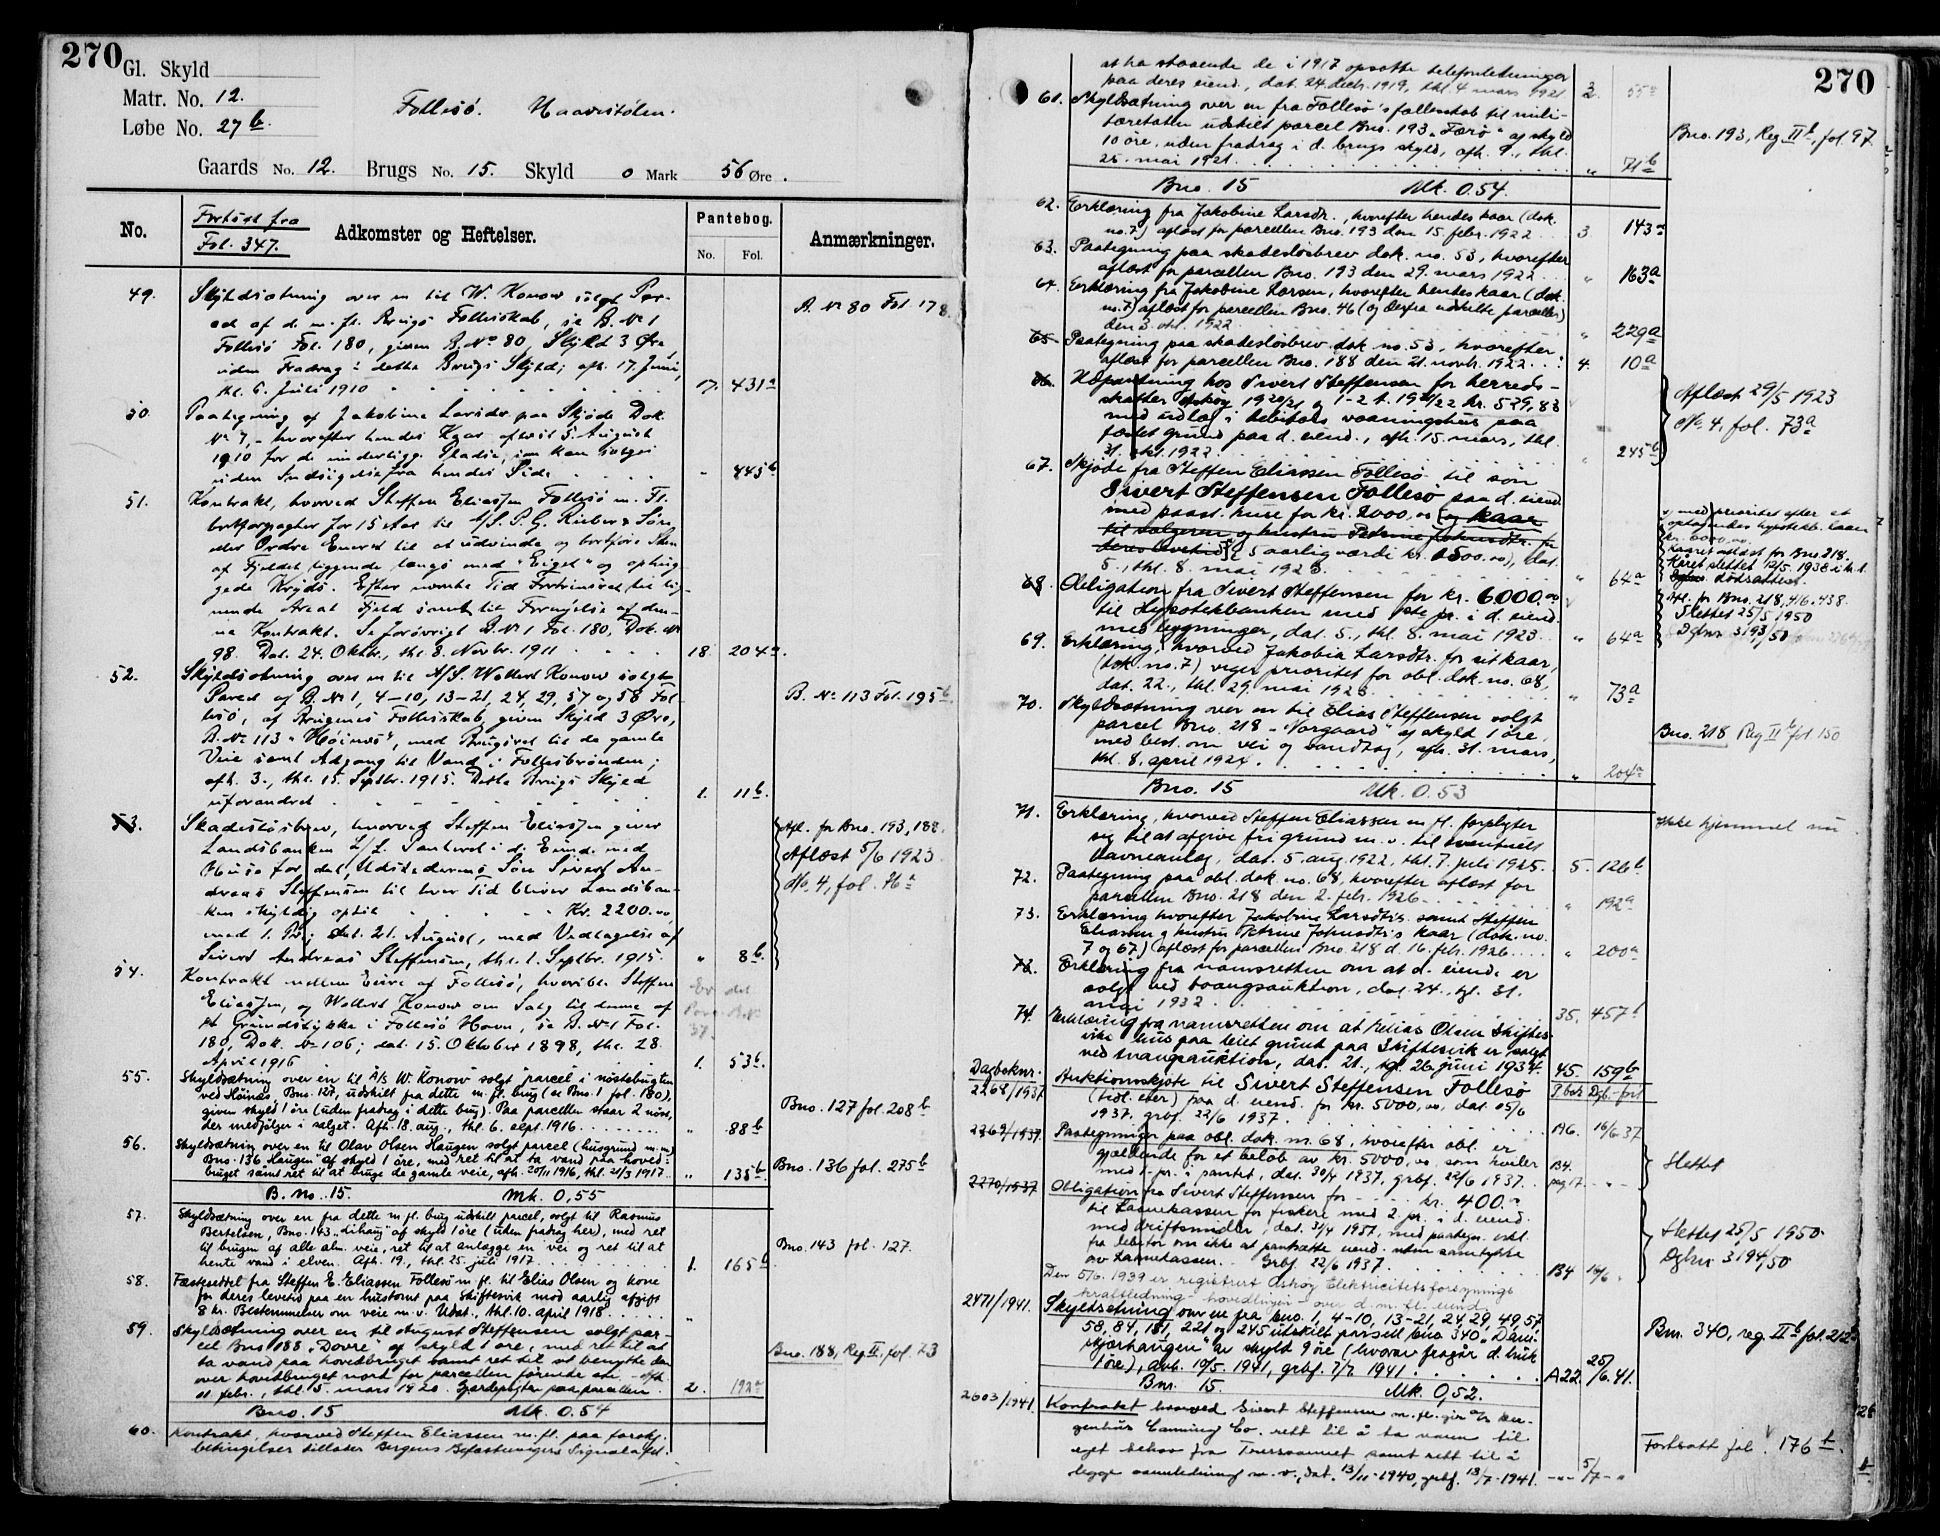 270
Gl. Skyld
Matr. No. 12.
Løbe No. 27 b.
Follesö. Haavistølen.
Gaards No. 12. Brugs No. 15. Skyld 0 Mark 56 Øre.
No.
Fortsat fra
Fol. 347.
Adkomster og Heftelser.
Pantebog.
No. Fol.
Anmærkninger.
49. Skyldsætning over en til W. Konow solgt Par-
cel af d. m. fl. Brugs Fellesskab, se B. No 1
Follesö Fol. 180, given B. No 80, Skyld 3 Øre,
uden Fradrag i dette Brugs Skyld; afh. 17. Juni,
thl. 6. Juli 1910 17. 431 a
A. No 80 Fol. 178
50. Paategning af Jakobine Larsdr. paa Skjöde Dok.
No 7, - hvorefter hendes Kaar aflæst 5. August
1910 for de
uden Indsigelse fra hendes Side " 445 b
51. Kontrakt, hvorved Steffen Eliassen Follesö m. Fl.
bortforpagter for 15 Aar til A/S P. G. Rieber & Søn
eller Ordre Eneret til at udvinde og bortføre
af Fjeldet liggende langs med "Eiget" og ophug-
gede Efter nævnte Tid Fortrinsret til lig-
nende Areal Fjeld samt til Fornyelse af den-
ne Kontrakt. Se forøvrigt B. No 1 Fol. 180, Dok. No
98. Dat. 24. Oktbr., thl. 3. Novbr. 1911 18. 204 a.
52. Skyldsætning over en til A/S. Wollert Konow solgt
Parcel af B. No 1, 4-10, 13-21, 24, 29, 57 og 58 Fol-
lesö, af Brugenes Fellesskab, given Skyld 3 Øre,
B. No 113 "Høines", med Brugsret til de gamle
Veie samt Adgang til Vand i Follesbrønden;
afh. 3., thl. 15. Septbr. 1915. Dette Brugs Skyld
uforandret 1. 11 b.
B. No 113 Fol. 195 b
53. Skadesløsbrev, hvorved Steffen Eliassen giver
Landsbanken L/L. Panteret i d. Eiend. med
Huse for det, Udstederens Søn Sivert An-
dreas Steffensen til hver Tid bliver Landsban-
ken skyldig optil Kr. 2200.00,
med 1. Pr.; dat. 21. August, med Vedtagelse af
Sivert Andreas Steffensen, thl. 1. Septbr. 1915. " 8 b.
Afl. for Bno. 193, 188.
Aflæst 5/6 1923.
No. 4, fol. 76 a
54. Kontrakt mellem Eiere af Follesö, hvoriblt. Steffen
Eliassen, og Wollert Konow om Salg til denne af
et Grundstykke i Follesö Havn, se B. No 1 Fol.
180, Dok. No 106; dat. 15. Oktober 1898, thl. 28.
April 1916 1. 53 b.
55. Skyldsætning over en til A/S W. Konow solgt parcel i nöstebugten
ved Höinæs, Bno. 127, udskilt fra dette m. fl. brug (se Bno. 1 fol. 180),
given skyld 1 öre (uden fradrag i dette brug). Paa parcellen staar 2 nöst,
der medfølger i salget. Afh. 18. aug., thl. 6. sept. 1916. " 88 b
Bno. 127 fol. 208 b
56. Skyldsætning over en til Olav Olsen Haugen solgt parcel (husgrund m.m.)
Bno. 136 "Haugen" af skyld 1 öre, med ret til at ta vand paa hoved-
bruget samt ret til at bruge de gamle veie, afh. 20/11 1916, thl. 21/3 1917. " 135 b
Bno. 136 fol. 275 b
B. no. 15. Mk. 0,55
57. Skyldsætning over en fra dette m. fl. brug udskilt parcel, solgt til Rasmus
Bertelsen, Bno. 143 "Lihaug" af skyld 1 öre (uden fradrag her), med ret
til brugen af alle alm. veie, ret til at anlægge en vei og ret til at
hente vand i elven. Afh. 19., thl. 25. juli 1917. 1. 165 b
Bno. 143 fol. 127.
58. Fæsteseddel fra Steffen E. Eliassen Follesö m. fl. til Elias Olsen og kone
for deres levetid paa en hustomt paa Skiftesvik mod aarlig afgift
8 kr. Bestemmelser om veie m. v. Udst., thl. 10. april 1918 "
59. Skyldsætning over en til August Steffensen solgt par-
cel Bno 188 "Dovre" af skyld 1 öre, med ret til at
ta vand paa hovedbruget samt ret til at benytte den
over hovedbruget nord for parcellen förende vei. - Afh.
11. febr., thl. 5. mars 1920. Gjerdepligter paa parcellen. 2. 192 a
Bno. 188, Reg. II, fol. 73
Bno. 15 Mk. 0.54
60. Kontrakt, hvorved Steffen Eliassen m. fl. paa forskj.
betingelser tillater Bergens Befæstningers Signalafd.
270
at ha staaende de i 1917 opsatte telefonledninger
paa deres eiend., dat. 24. decbr. 1919, thl. 4 mars 1921 2. 55 a
61. Skyldsætning over en fra Follesö's fællesskab til mili-
tæretaten udskilt parcel Bno. 193 "Færö" af skyld
10 öre, uden fradrag i d. brugs skyld, afh. 9., thl.
25. mai 1921. " 71 b
Bno. 193, Reg. II b, fol. 97.
Bno. 15 Mk. 0.54.
62. Erklæring fra Jakobine Larsdr., hvorefter hendes kaar (dok.
no. 7) aflæst for parcellen Bno. 193 den 15. febr. 1922 3. 143 a
63. Paategning paa skadeslösbrev dok. no. 53, hvorefter
aflæst for parcellen Bno. 193 den 29. mars 1922 " 163 a
64. Erklæring fra Jakobine Larsen, hvorefter hendes kaar (dok.
no. 7) aflæst for parcellen Bno. 46 (og derfra udskilte parceller)
den 3. okt. 1922 " 229 a
65. Paategning paa skadeslösbrev dok. no. 53, hvorefter
aflæst for parcellen Bno. 188 den 21. novb. 1922 4. 10 a
66. Utpantning hos Sivert Steffensen for herreds-
skatter Askøy 1920/21 og 1-2 t. 1921/22 kr. 529,83
med utlæg i debitors vaaningshus paa
fæstet grund paa d. eiend., afh. 15. mars, thl.
31. okt. 1922 " 245 b
Aflæst 29/5 1923
No. 4, fol. 73 a
67. Skjöde fra Steffen Eliassen Follesö til sön
Sivert Steffensen Follesö paa d. eiend.
med paast. huse for kr. 2000,00 og kaar
til sælgeren og hustru Petrine Johnsdtr. for
deres levetid (5 aarlig værdi kr. 1500.00), dat.
5., thl. 8. mai 1923. " 64 a
med prioritet efter et
optagendes hypotekb. laan
kr. 6000,00.
Kaaret aflæst for Bno 218.
Kåret slettet 12/5 1938 i h. t.
dødsattest.
68. Obligation fra Sivert Steffensen for kr. 6000.00
til Hypotekbanken med 1ste pr. i d. eiend.
med bygninger, dat. 5., thl. 8. mai 1923. " 64 a
Afl. for Bno. 218, 416, 438.
Slettet 25/5 1950
Dgbnr 3193/50
69. Erklæring, hvorved Jakobia Larsdtr. for sit kaar,
(dok. no. 7) viger prioritet for obl. dok. no. 68,
dat. 22., thl. 29. mai 1923. " 73 a
70. Skyldsætning over en til Elias Steffensen solgt
parcel Bno. 218 "Norgaard" af skyld 1 öre,
med best. om vei og vandtag, afh. 31. mars,
thl. 8. april 1924. " 204 a
Bno. 218 Reg II b fol 150
Bno. 15 Mk. 0.53
71. Erklæring, hvorved Steffen Eliassen m. fl. forpligter
sig til at afgive fri grund m. v. til eventuelt
havneanlæg, dat. 5. aug. 1922, thl. 7. juli 1925. 5. 126 b
Ikke hjemmel nu
72. Paategning paa obl. dok. no. 68, hvorefter aflæst for
parcellen Bno. 218 den 2. febr. 1926 " 192 a
73. Erklæring hvorefter Jakobine Larsdtr's samt Steffen
Eliassen og hustru Petrine Johnsdtr's kaar (dok. no.
7 og 67) aflæst for parcellen Bno. 218 d. 16. febr. 1926 " 200 a
73. Erklæring fra namsretten om at d. eiend. er
solgt ved tvangsauktion, dat. 24., tgl. 31.
mai 1932 35. 457 b
74. Erklæring fra namsretten om at Elias Olsen Skiftes-
vik's hus paa leiet grunt paa Skiftesvik er solgt
ved tvangsauktion, dat. 21., tgl. 26 juni 1934. 45. 159 b
Dagboknr.
2268/1937
P.bok Dgb. ført
Auktionsskjöte til Sivert Steffensen Follesö
(tidl. eier) paa d. eiend. for kr. 5000,00, dat. 15/6
1937, grbf. 22/6 1937 A6. 16/6 37
2269/1937. Paategninger paa obl. dok. nr. 68, hvorefter obl. er
gjældende for et belöb av kr. 5000,00, som hviler
med 1. pr. i pantet, dat. 30/4 1937, grbf. 22/6 1937. B4. pag 17. - " -
Slettet
2270/1937 Obligation fra Sivert Steffensen for kr. 400.00
til Laanekassen for fiskere med 2. pr. i d. eiend.
med driftsmidler, dat. 31/4 1937, med paategn.
fra debitor om ikke at pantsætte eiend. uten samtykke
av Laanekassen. Grbf. 22/6 1937. B4 16/6.
Slettet 25/5 1950.
Dgbnr 3194/50
Den 5/6. 1939 er registrert Askøy Elektricitetsforsynings
kraftledning - hovedlinjer - over d. m. fl. eiend.
2471/1941. Skyldsetning over en fra bno. 1, 4-10, 13-21, 24, 29, 49, 57
58, 84, 181, 221, og 245 utskilt parsell bno 340 "Dam-
skjærhaugen" av skyld 9 øre (hvorav fragår d. bruk
1 øre), avh. 10/5. 1941, grbf. 7/7 1941. A22. 25/6. 41.
Bnr. 340, reg. II b fol. 212 b
Bnr. 15. Mk. 0,52.
2603/1941. Kontrakt hvorved Sivert Steffensen m. fl. gir A/S Ber-
genhus Canning Co. rett til å ta vann til
eget behov fra samt rett til å
legge vannledning m. v., dat. 13/11-1940, grbf. 13/7-1941. -"- 5/7 - "
Fortsatt fol. 176 b.